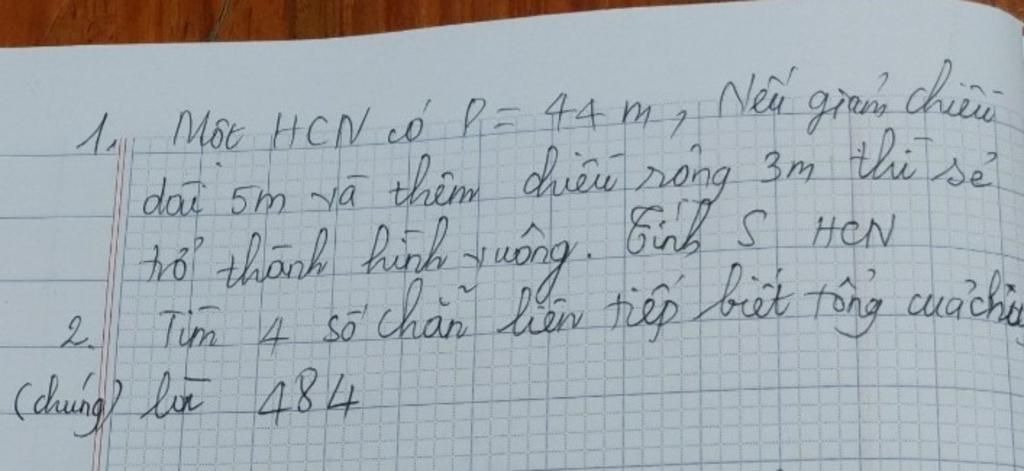 1. Một HCN có P = 44 m, Nếu giảm chiều
dài 5m và thêm chiều rộng 3m thì sẽ
trở thành hình vuông. Tính S HCN
2. Tìm 4 số chẵn liên tiếp biết tổng của chú
(chúng) là 484